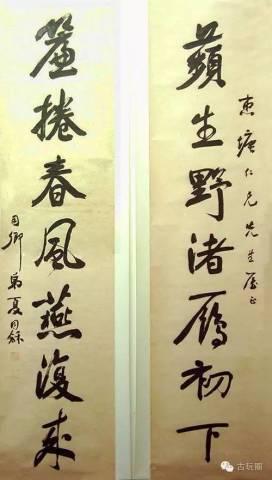 蘋生野渚雁初下
仁兄先生屬正
簾捲春風燕復來
用卿弟夏同龢
古玩圈